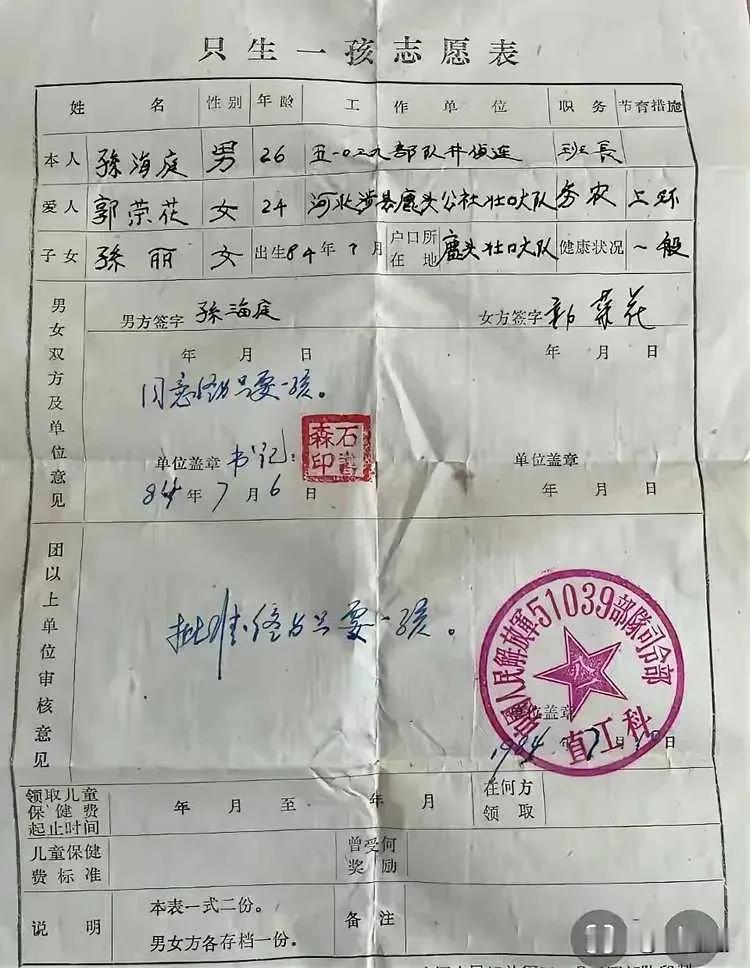 只生一孩志愿表
姓 名 性别 年龄 工作单位 职务 节育措施
本人 孙海庭 男 26 五一〇三九部队井侦连 班長
爱人 郭荣花 女 24 河北涉县鹿头公社壮口大队 务农 上环
子女 孙丽 女 出生84年7月 户口所在地 鹿头壮口大队 健康状况 一般
男女双方及单位意见
男方签字 孙海庭 女方签字 郭荣花
年 月 日 年 月 日
同意终身只要一孩。
单位盖章 书记: 单位盖章
石
森印
84年7月6日 年 月 日
团以上单位审核意见
批准终身只要一孩。
中国人民解放軍51039部隊司令部
直工科
单位盖章
1984年7月 日
领取儿童保健费起止时间 年 月 至 年 月 在何方领取
儿童保健费标准 曾受何奖励
说明 本表一式二份。 备注
男女方各存档一份。